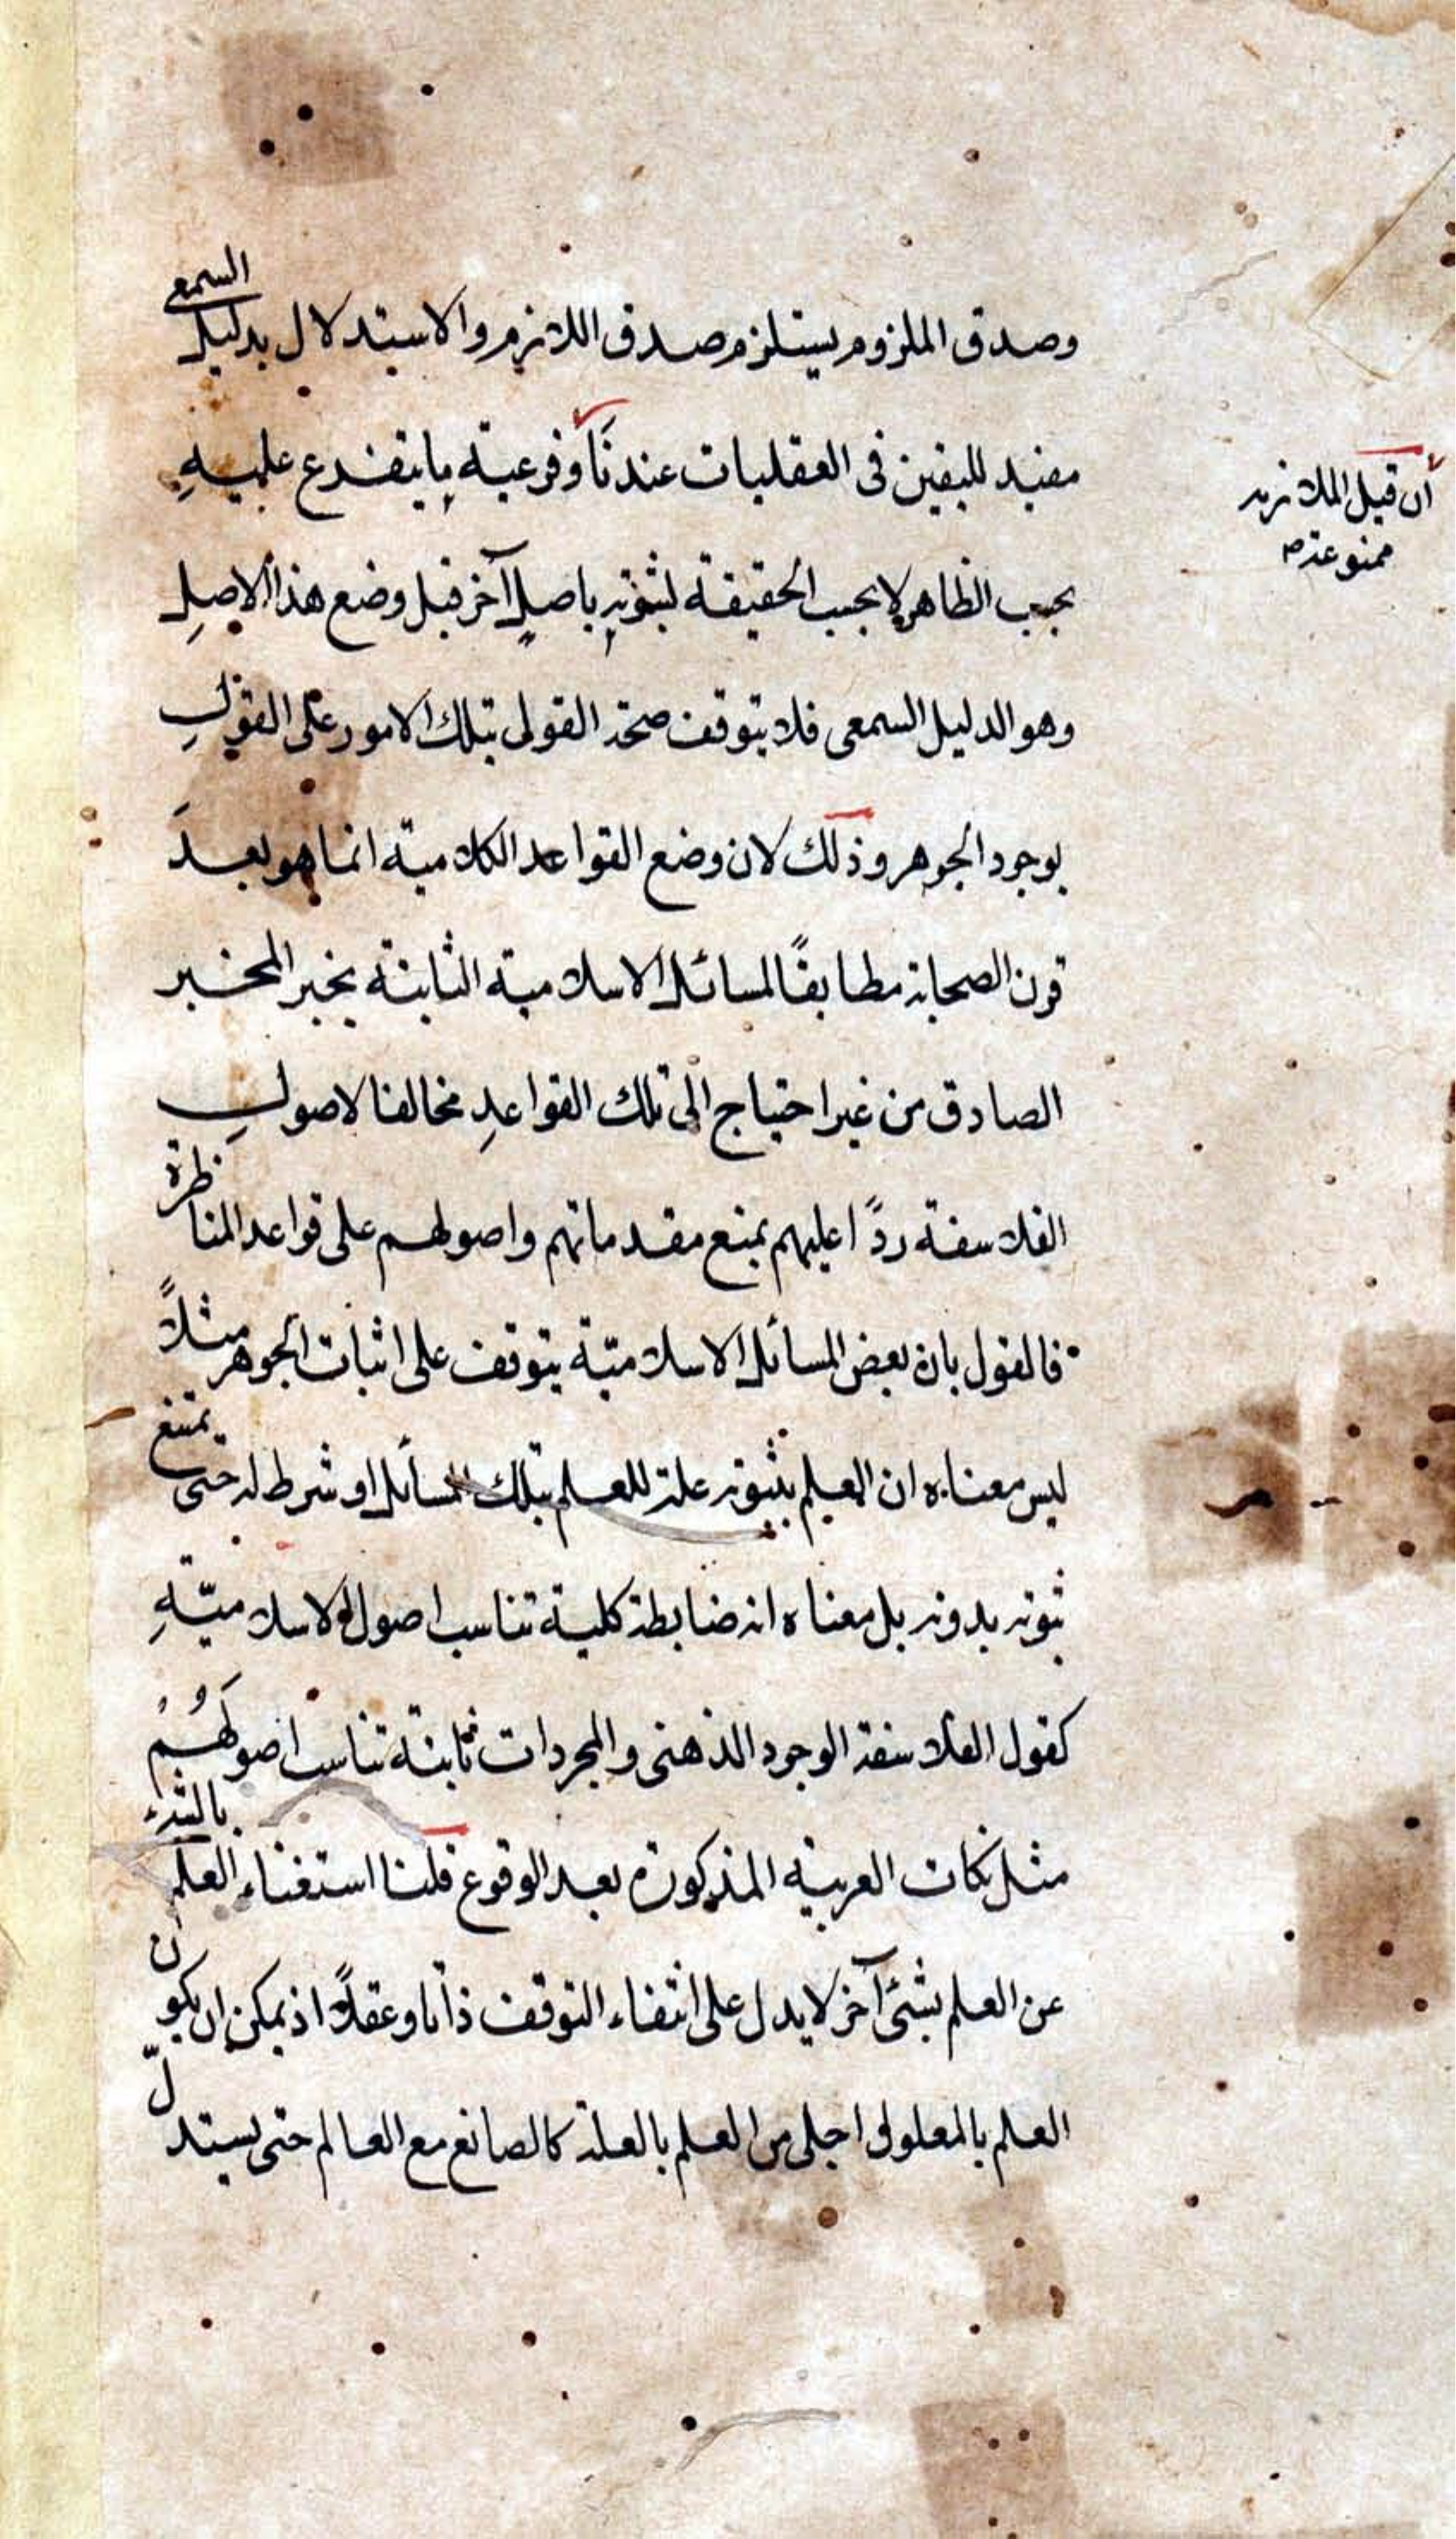 وصدق الملزوم يستلزم صدق اللازم والاستدلال بدليل السمعى
مفيد لليقين فى العقليات عندنا وفرعية ما يتفرع عليه
بحسب الظاهر لا بحسب الحقيقة لثبوته باصل آخر قبل وضع هذا الاصل
وهو الدليل السمعى فلا يتوقف صحة القول بتلك الامور على القول
بوجود الجوهر وذلك لان وضع القواعد الكلامية انما هو بعد
قرن الصحابة مطابقًا لمسائل الاسلامية الثابتة بخبر المخبر
الصادق من غير احتياج الى تلك القواعد مخالفا لاصول
الفلاسفة ردًا عليهم بمنع مقدماتهم واصولهم على قواعد المناظرة
فالقول بان بعض المسائل الاسلاميّة يتوقف على اثبات الجوهر مثلاً
ليس معناه ان العلم بثبوته علة للعلم بتلك المسائل او شرط له حتى يمتنع
ثبوته بدونه بل معناه انه ضابطة كلية تناسب اصول الاسلاميّة
كقول الفلاسفة الوجود الذهنى والمجردات ثابتة تناسب اصولهم
مثل نكات العربية المذكورة بعد الوقوع قلنا استغناء العلم بالشئ
عن العلم بشئ آخر لا يدل على انتفاء التوقف ذاتا وعقلاً اذ يمكن ان يكون
العلم بالمعلول اجلى من العلم بالعلة كالصانع مع العالم حتى يستدلّ
ان قيل الملازمة
ممنوعة